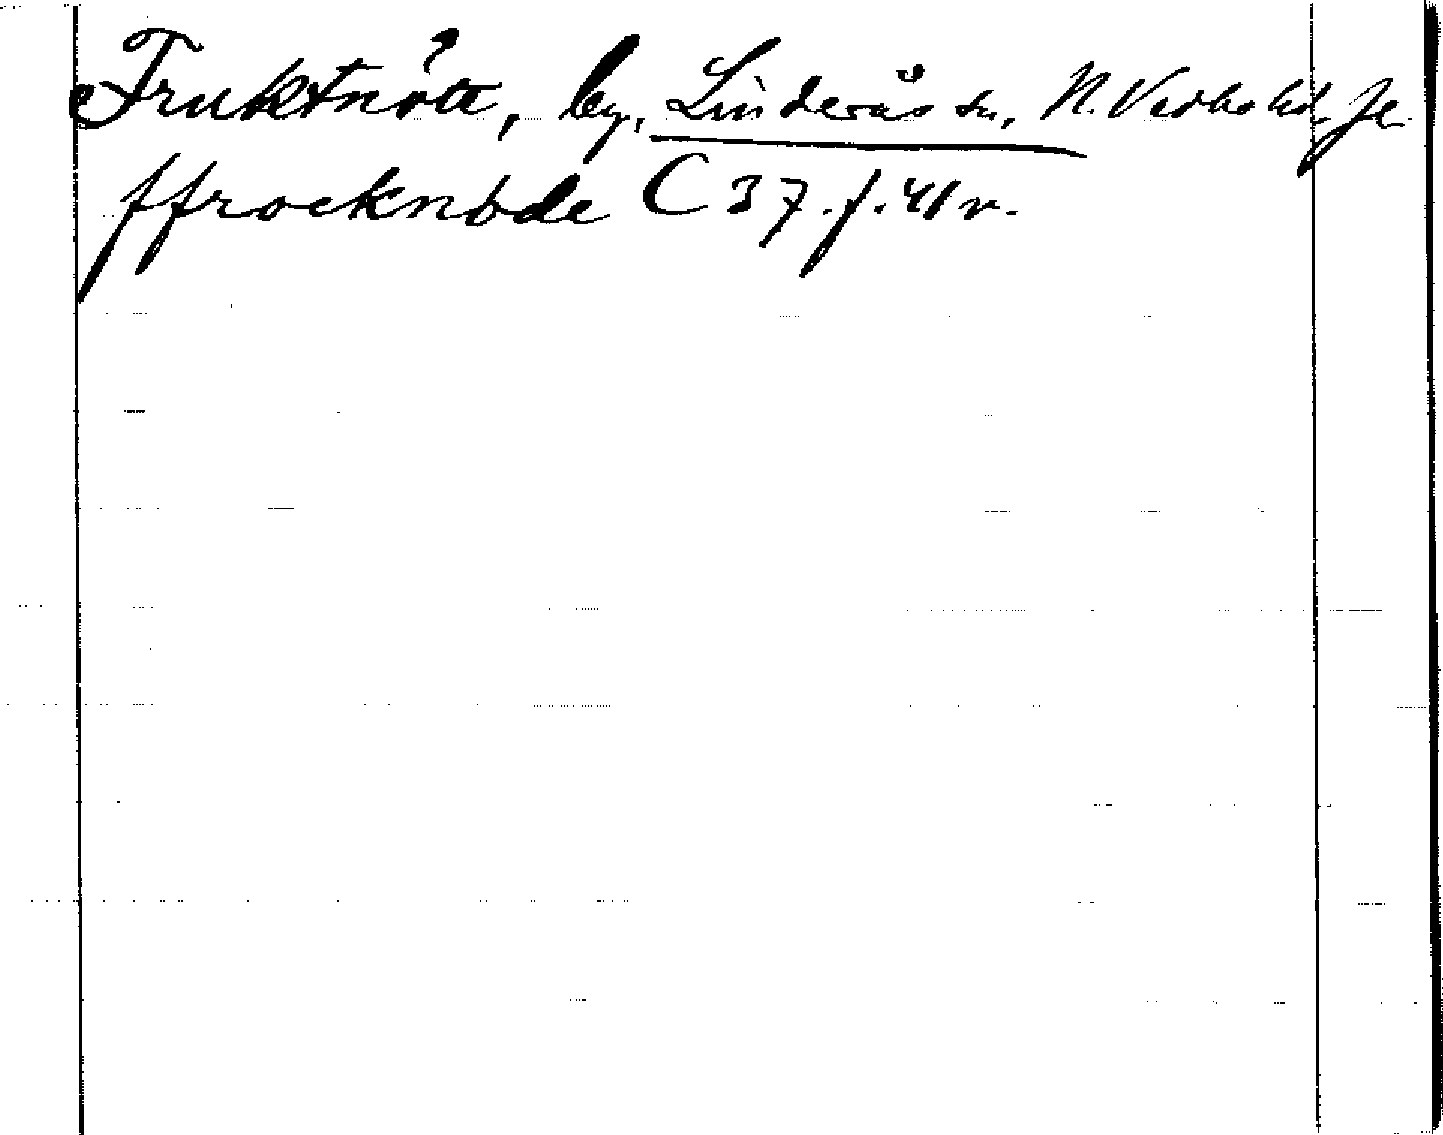 Fruktnött, by, Linderås sn, N. Vedbo hd, Je
ffrocknöde C 37. f. 41 v.